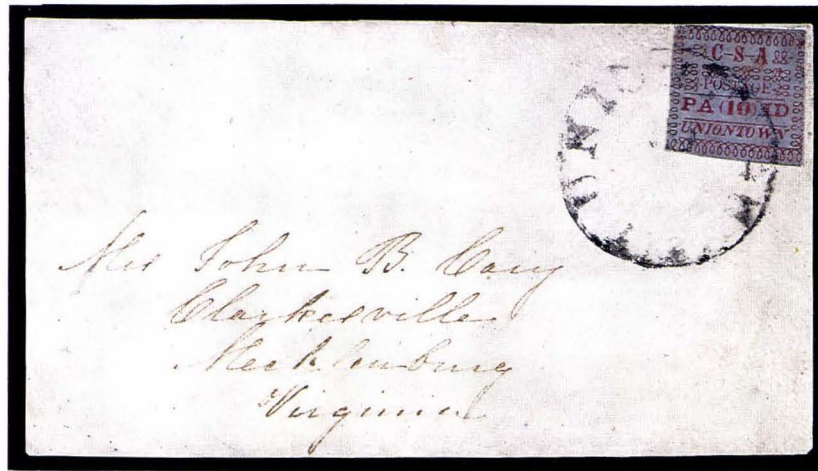 C-S-A
POSTAGE
PA (10) ID
UNIONTOWN
UNION
Mrs John B. Cary
Clarkesville
Mecklenburg
Virginia